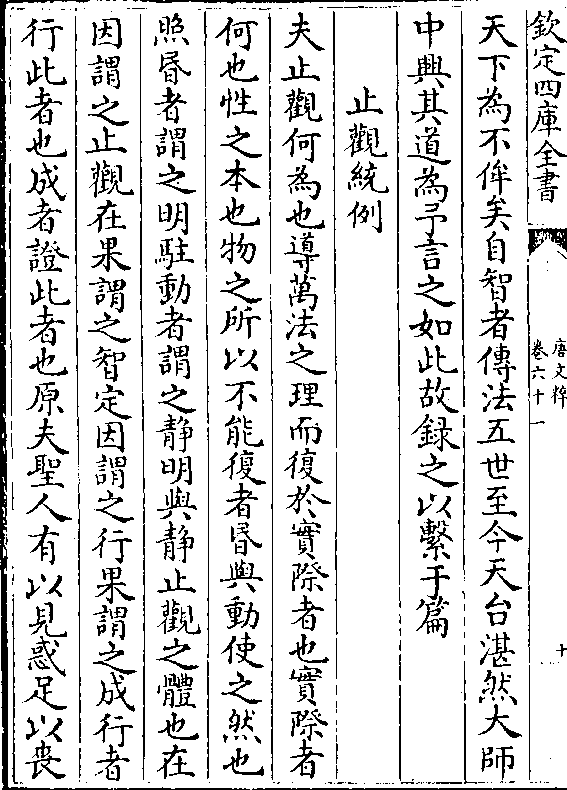 欽定四庫全書
唐文粹
卷六十一
十
天下為不侔矣自智者傳法五世至今天台湛然大師
中興其道為予言之如此故録之以繫于篇
止觀統例
夫止觀何為也導萬法之理而復於實際者也實際者
何也性之本也物之所以不能復者昏與動使之然也
照昏者謂之明駐動者謂之静明與静止觀之體也在
因謂之止觀在果謂之智定因謂之行果謂之成行者
行此者也成者證此者也原夫聖人有以見惑足以喪